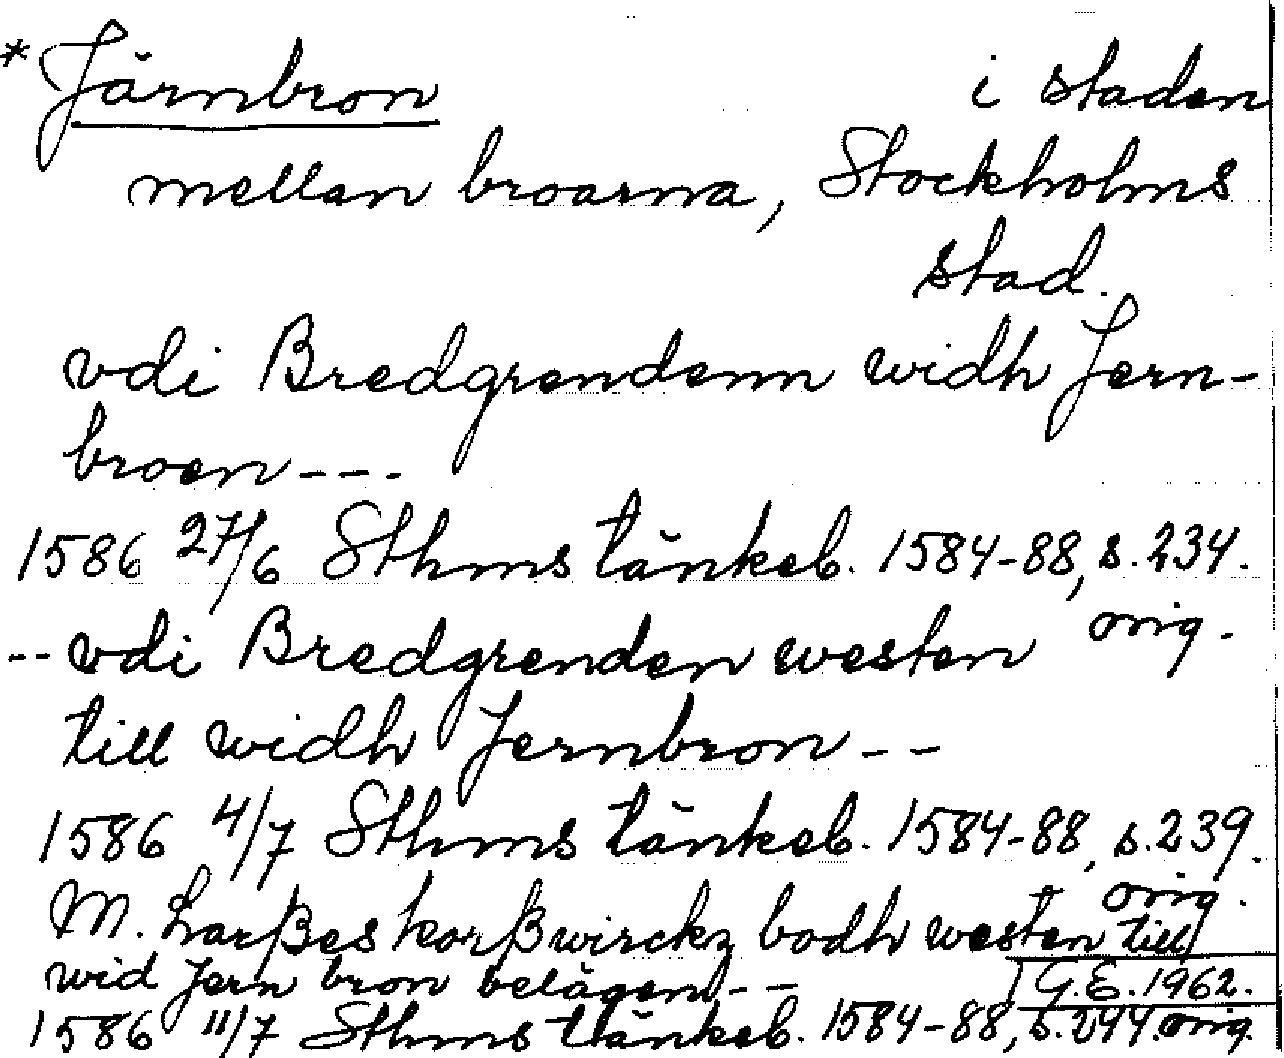 * Järnbron i staden
mellan broarna, Stockholms
stad.
vdi Bredgrendenn widh Jern-
broen---
1586 27/6 Sthms tänkeb. 1584-88, s. 234.
orig.
-- vdi Bredgrenden westen
till widh Jernbron --
1586 4/7 Sthms tänkeb. 1584-88, s. 239.
orig.
M. Larßes korßwirckz bodh westen till
wid Jern bron belägen --
G.E. 1962.
1586 11/7 Sthms tänkeb. 1584-88, s. 244. orig.